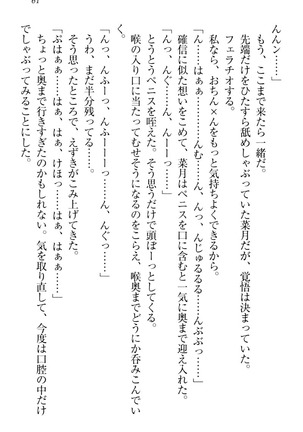 んんン……」
もう、ここまで来たら一緒だ。
先端だけをひたすら舐めしゃぶっていた菜月だが、覚悟は決まっていた。
フェラチオする。
私なら、おちん×んをもっと気持ちよくできるから。
「ん……はぁぁ……んむ……ん、んっ、んじゅるるる……んぶぶっ……」
確信に似た想いをこめて、菜月はペニスを口に含むと一気に奥まで迎え入れた。
「んーっ……んっ、んーーっ……」
とうとうペニスを咥えた。そう思うだけで頭ぼーっとしてくる。
喉の入り口に当たってむせそうになるのをこらえ、喉奥までどうにか呑みこんでい
く。
「んっ、んふーっ、んふーーっ……ん、んぐっ……」
うわ、まだ半分残ってる……。
そう思ったところで、えずきがこみ上げてきた。
「ぷはぁぁっ……はぁ、はぁ、けほっ……はぁ、はぁぁ……」
ちょっと奥まで行きすぎたのかもしれない。気を取り直して、今度は口腔の中だけ
でしゃぶってみることにした。
61